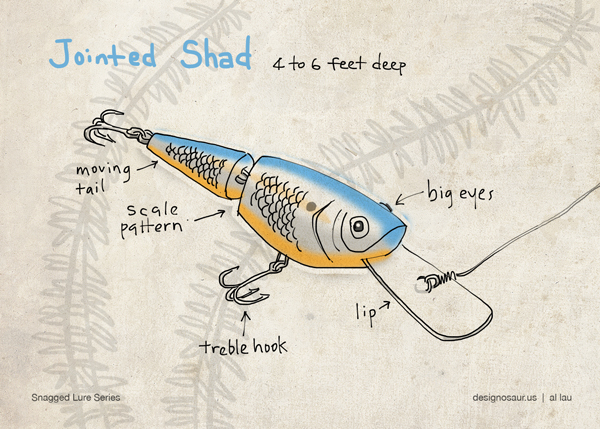 Jointed Shad 4 to 6 feet deep
moving
tail
big eyes
scale
pattern
lip
treble hook
Snagged Lure Series
designosaur.us | al lau